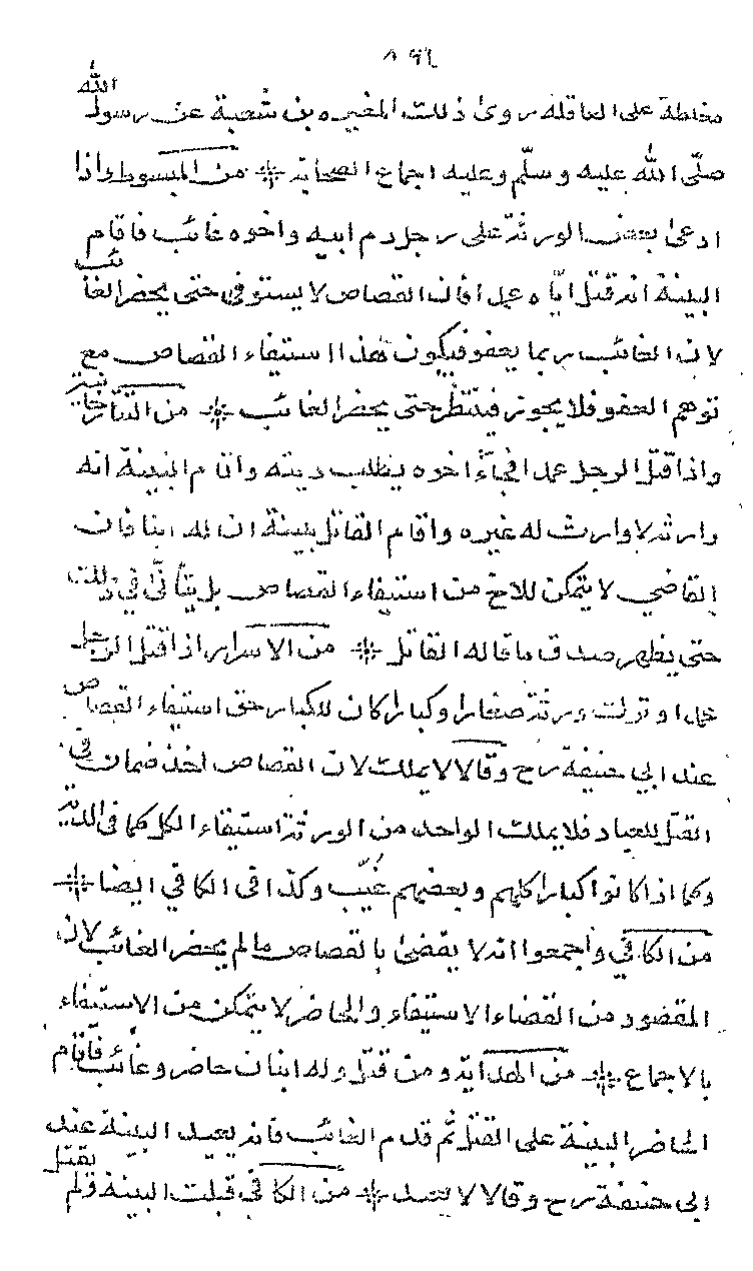 ٨٩٦
مغلظة على العاقلة روى ذلك المغيره بن شعبة عن رسول الله
صلّى الله عليه وسلّم وعليه اجماع الصحابة من المبسوط واذا
ادعى بعض الورثة على رجل دم ابيه واخوه غائب فاقام
البينة انه قتل اباه عمدا فان القصاص لا يستوفى حتى يحضر الغائب
لان الغائب ربما يعفو فيكون هذا استيفاء القصاص مع
توهم العفو فلا يجوز فينتظر حتى يحضر الغائب من التتارخانية
واذا قتل الرجل عمدا فجاء اخوه يطلب ديته واقام البينة انه
وارثه لا وارث له غيره واقام القاتل بينة ان له ابنا فان
القاضي لا يتمكن للاخ من استيفاء القصاص بل يتأنّى في ذلك
حتى يظهر صدق ما قاله القاتل من الاسرار اذا قتل الرجل
عمدا وترك ورثة صغارا وكبارا كان للكبار حق استيفاء القصاص
عند ابي حنيفة رح وقالا لا يملك لان القصاص اخذ ضمان في
القتل للعباد فلا يملك الواحد من الورثة استيفاء الكل كما في الدية
وكما اذا كانوا كبارا كلهم وبعضهم غُيّب وكذا في الكافي ايضا
من الكافي واجمعوا انه لا يقضى بالقصاص مالم يحضر الغائب لان
المقصود من القضاء الاستيفاء والحاضر لا يتمكن من الاستيفاء
بالاجماع من الهداية ومن قتل وله ابنان حاضر وغائب فاقام
الحاضر البينة على القتل ثم قدم الغائب فانه يعيد البينة عند
ابى حنيفة رح وقالا لا يعيد من الكافي قبلت البينة ولم يقتل